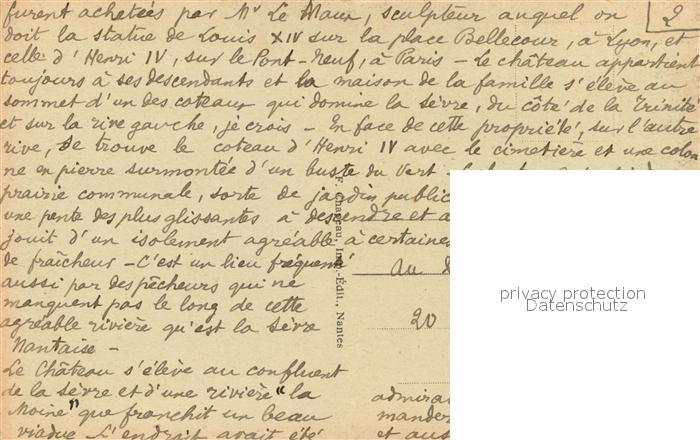 furent achetées par Mr Le Maux, sculpteur auquel on
doit la statue de Louis XIV sur la place Bellecour, à Lyon, et
celle d'Henri IV, sur le Pont-Neuf, à Paris - Le château appartient
toujours à ses descendants et la maison de la famille s'élève au
sommet d'un des coteaux qui domine la sèvre, du côté de la Trinité
et sur la rive gauche, je crois - En face de cette propriété, sur l'autre
rive, se trouve le coteau d'Henri IV avec le cimetière et une colon
ne en pierre surmontée d'un buste du Vert-
prairie communale, sorte de jardin public
une pente des plus glissantes à descendre et a
jouit d'un isolement agréable à certaines
de fraîcheur - C'est un lieu fréquenté
aussi par des pêcheurs qui ne
manquent pas le long de cette
agréable rivière qu'est la Sèvre
Nantaise -
Le Château s'élève au confluent
de la sèvre et d'une rivière "la
Moine" que franchit un beau
viaduc L'endroit avait été
2
F. Chapeau, Imp.-Édit., Nantes
au
20
admira
mander
et aus
privacy protection
Datenschutz